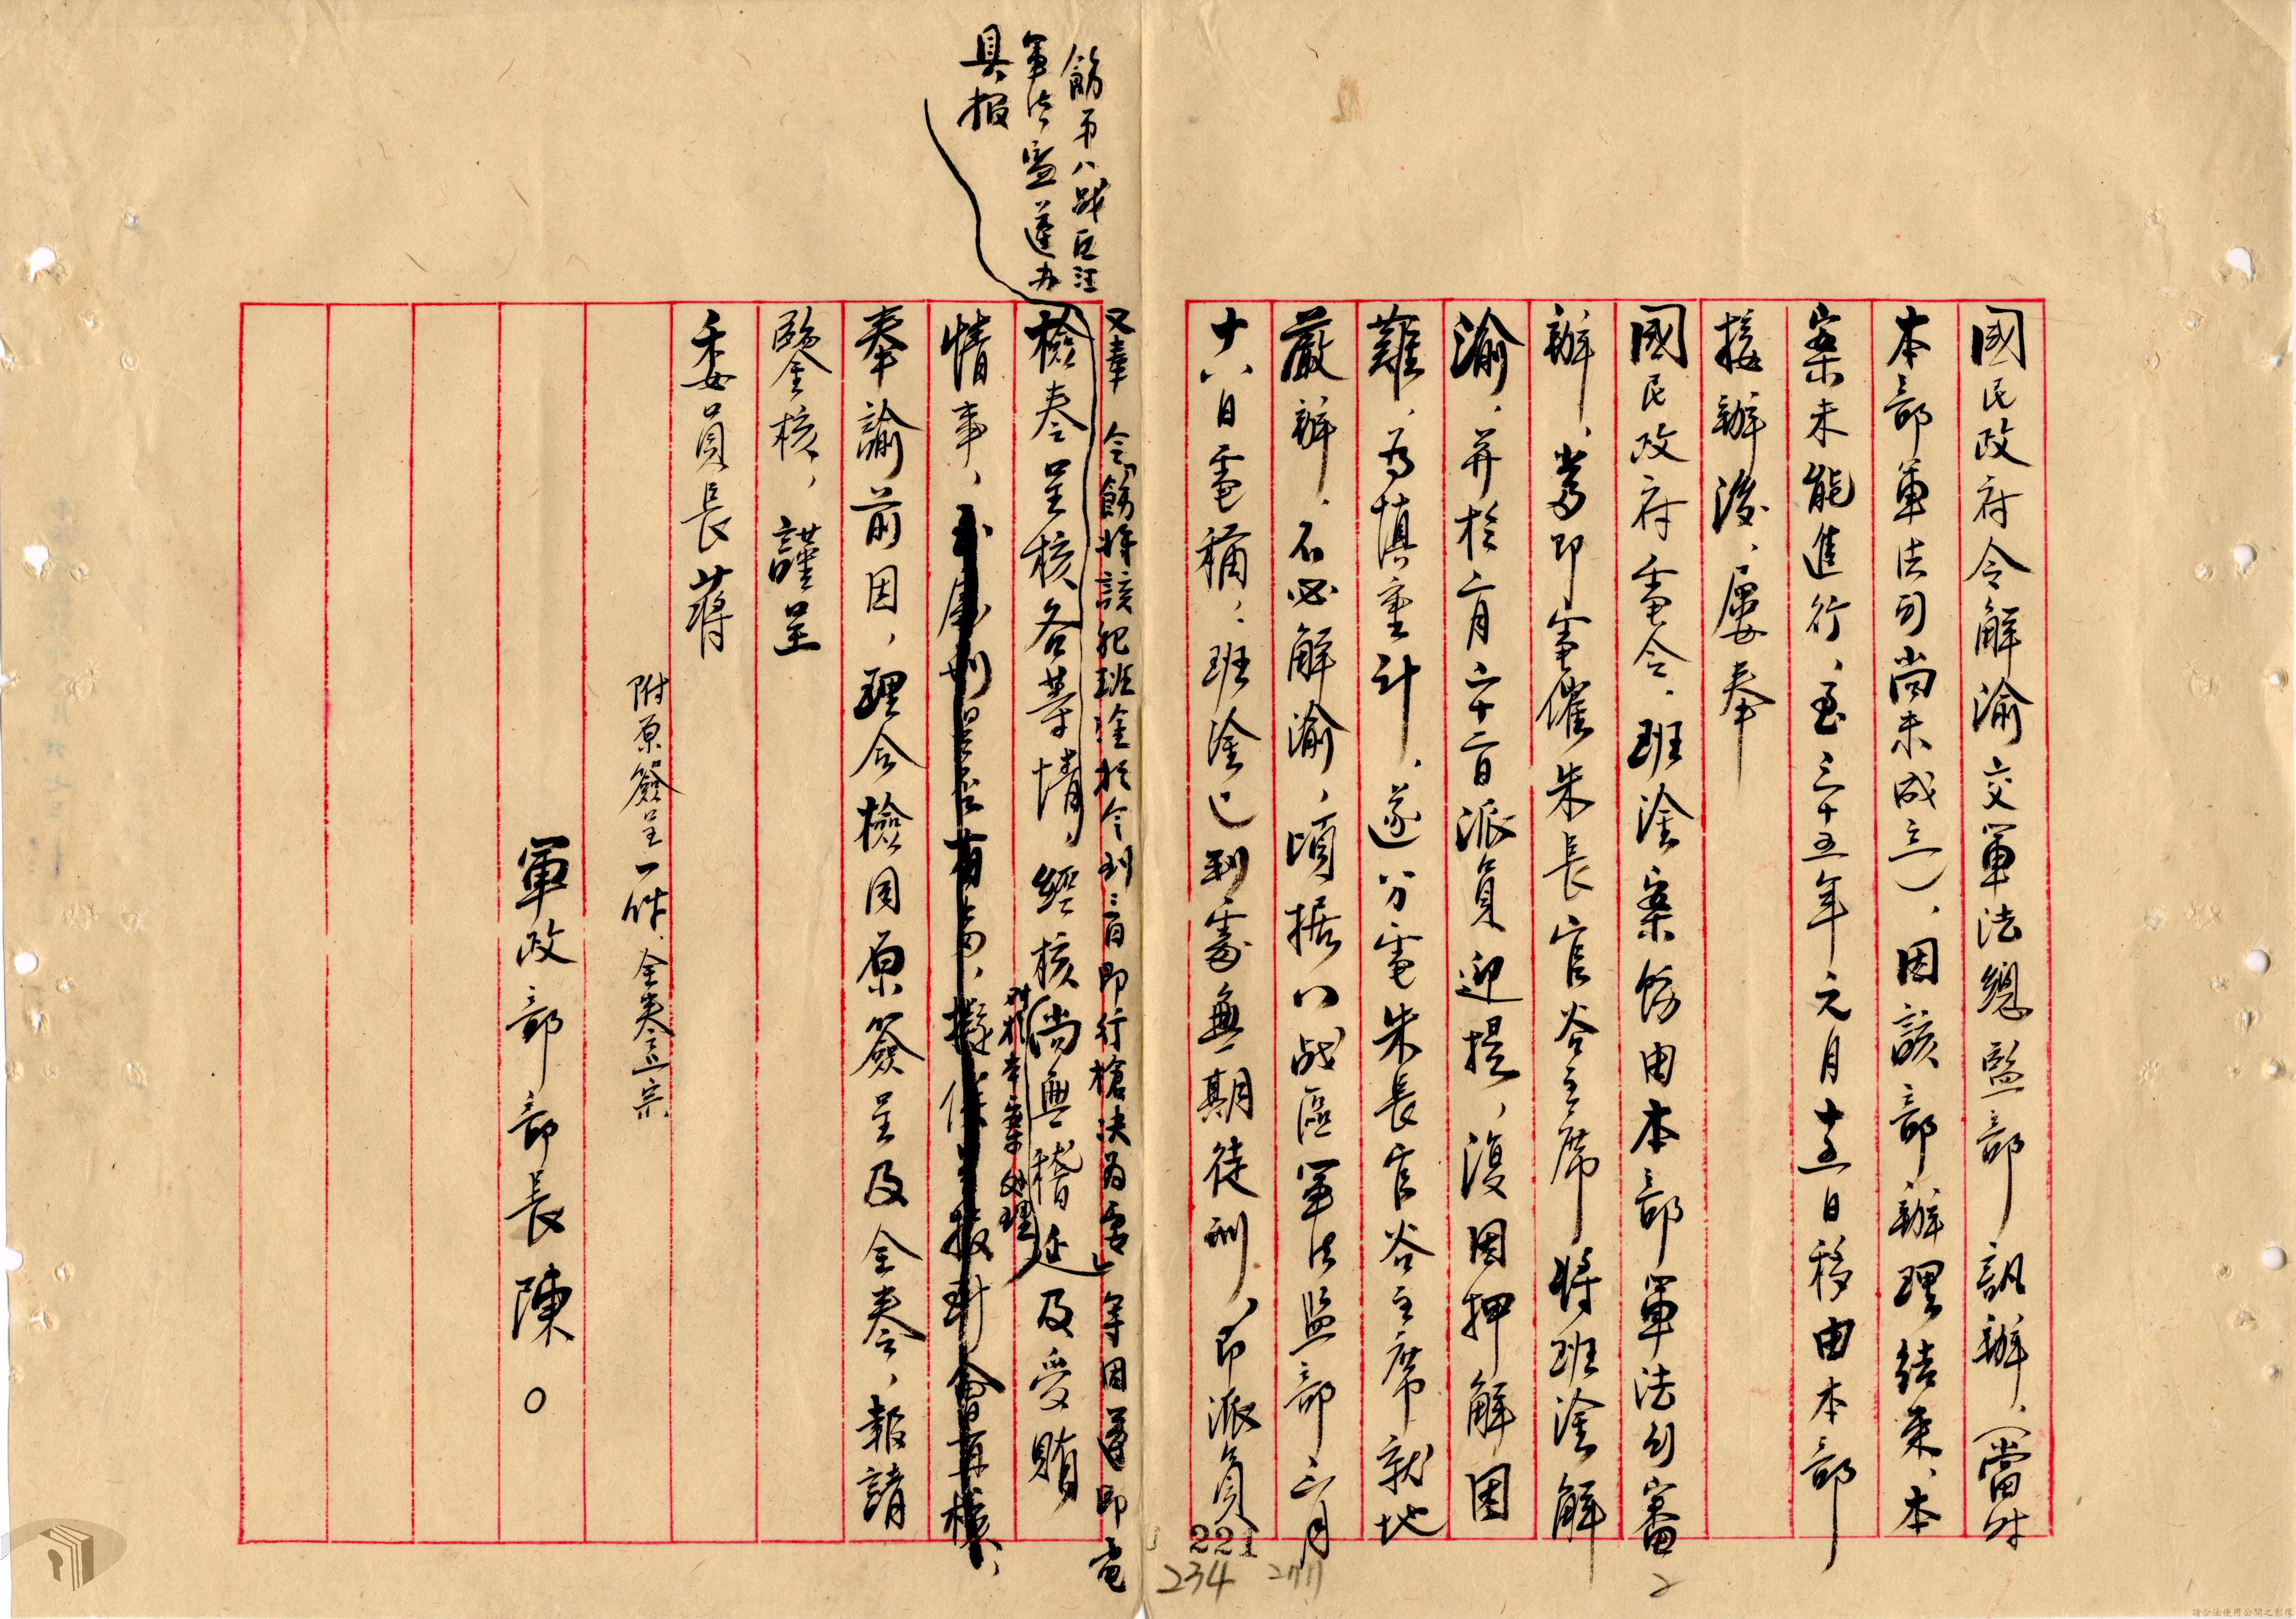 國民政府令解渝交軍法總監部訊辦,(當時
本部軍法司尚未成立),因該部辦理結束,本
案未能進行,至三十五年元月十五日移由本部
接辦後,屢奉
國民政府電令,班淦案飭由本部軍法司審
辦,當即電催朱長官谷主席將班淦解
渝,并於二月二十二日派員迎提,復因押解困
難,為慎重計,遂分電朱長官谷主席就地
嚴辦,不必解渝,頃据八战區軍法监部三月
十八日電稱:班淦已判處無期徒刑,即派員
又奉 令「飭將該犯班淦於令到三日即行槍決為要」等因遵即電
飭第八战區
軍法监遵办
具报
檢卷呈核各等情,經核尚無稽延及受賄
情事,
對於本案處理
奉諭前因,理合檢同原簽呈及全卷,報請
鑒核,謹呈
委員長蔣
附原簽呈一件、全卷一宗
軍政部部長陳○
221
234
請合法使用公開之影像